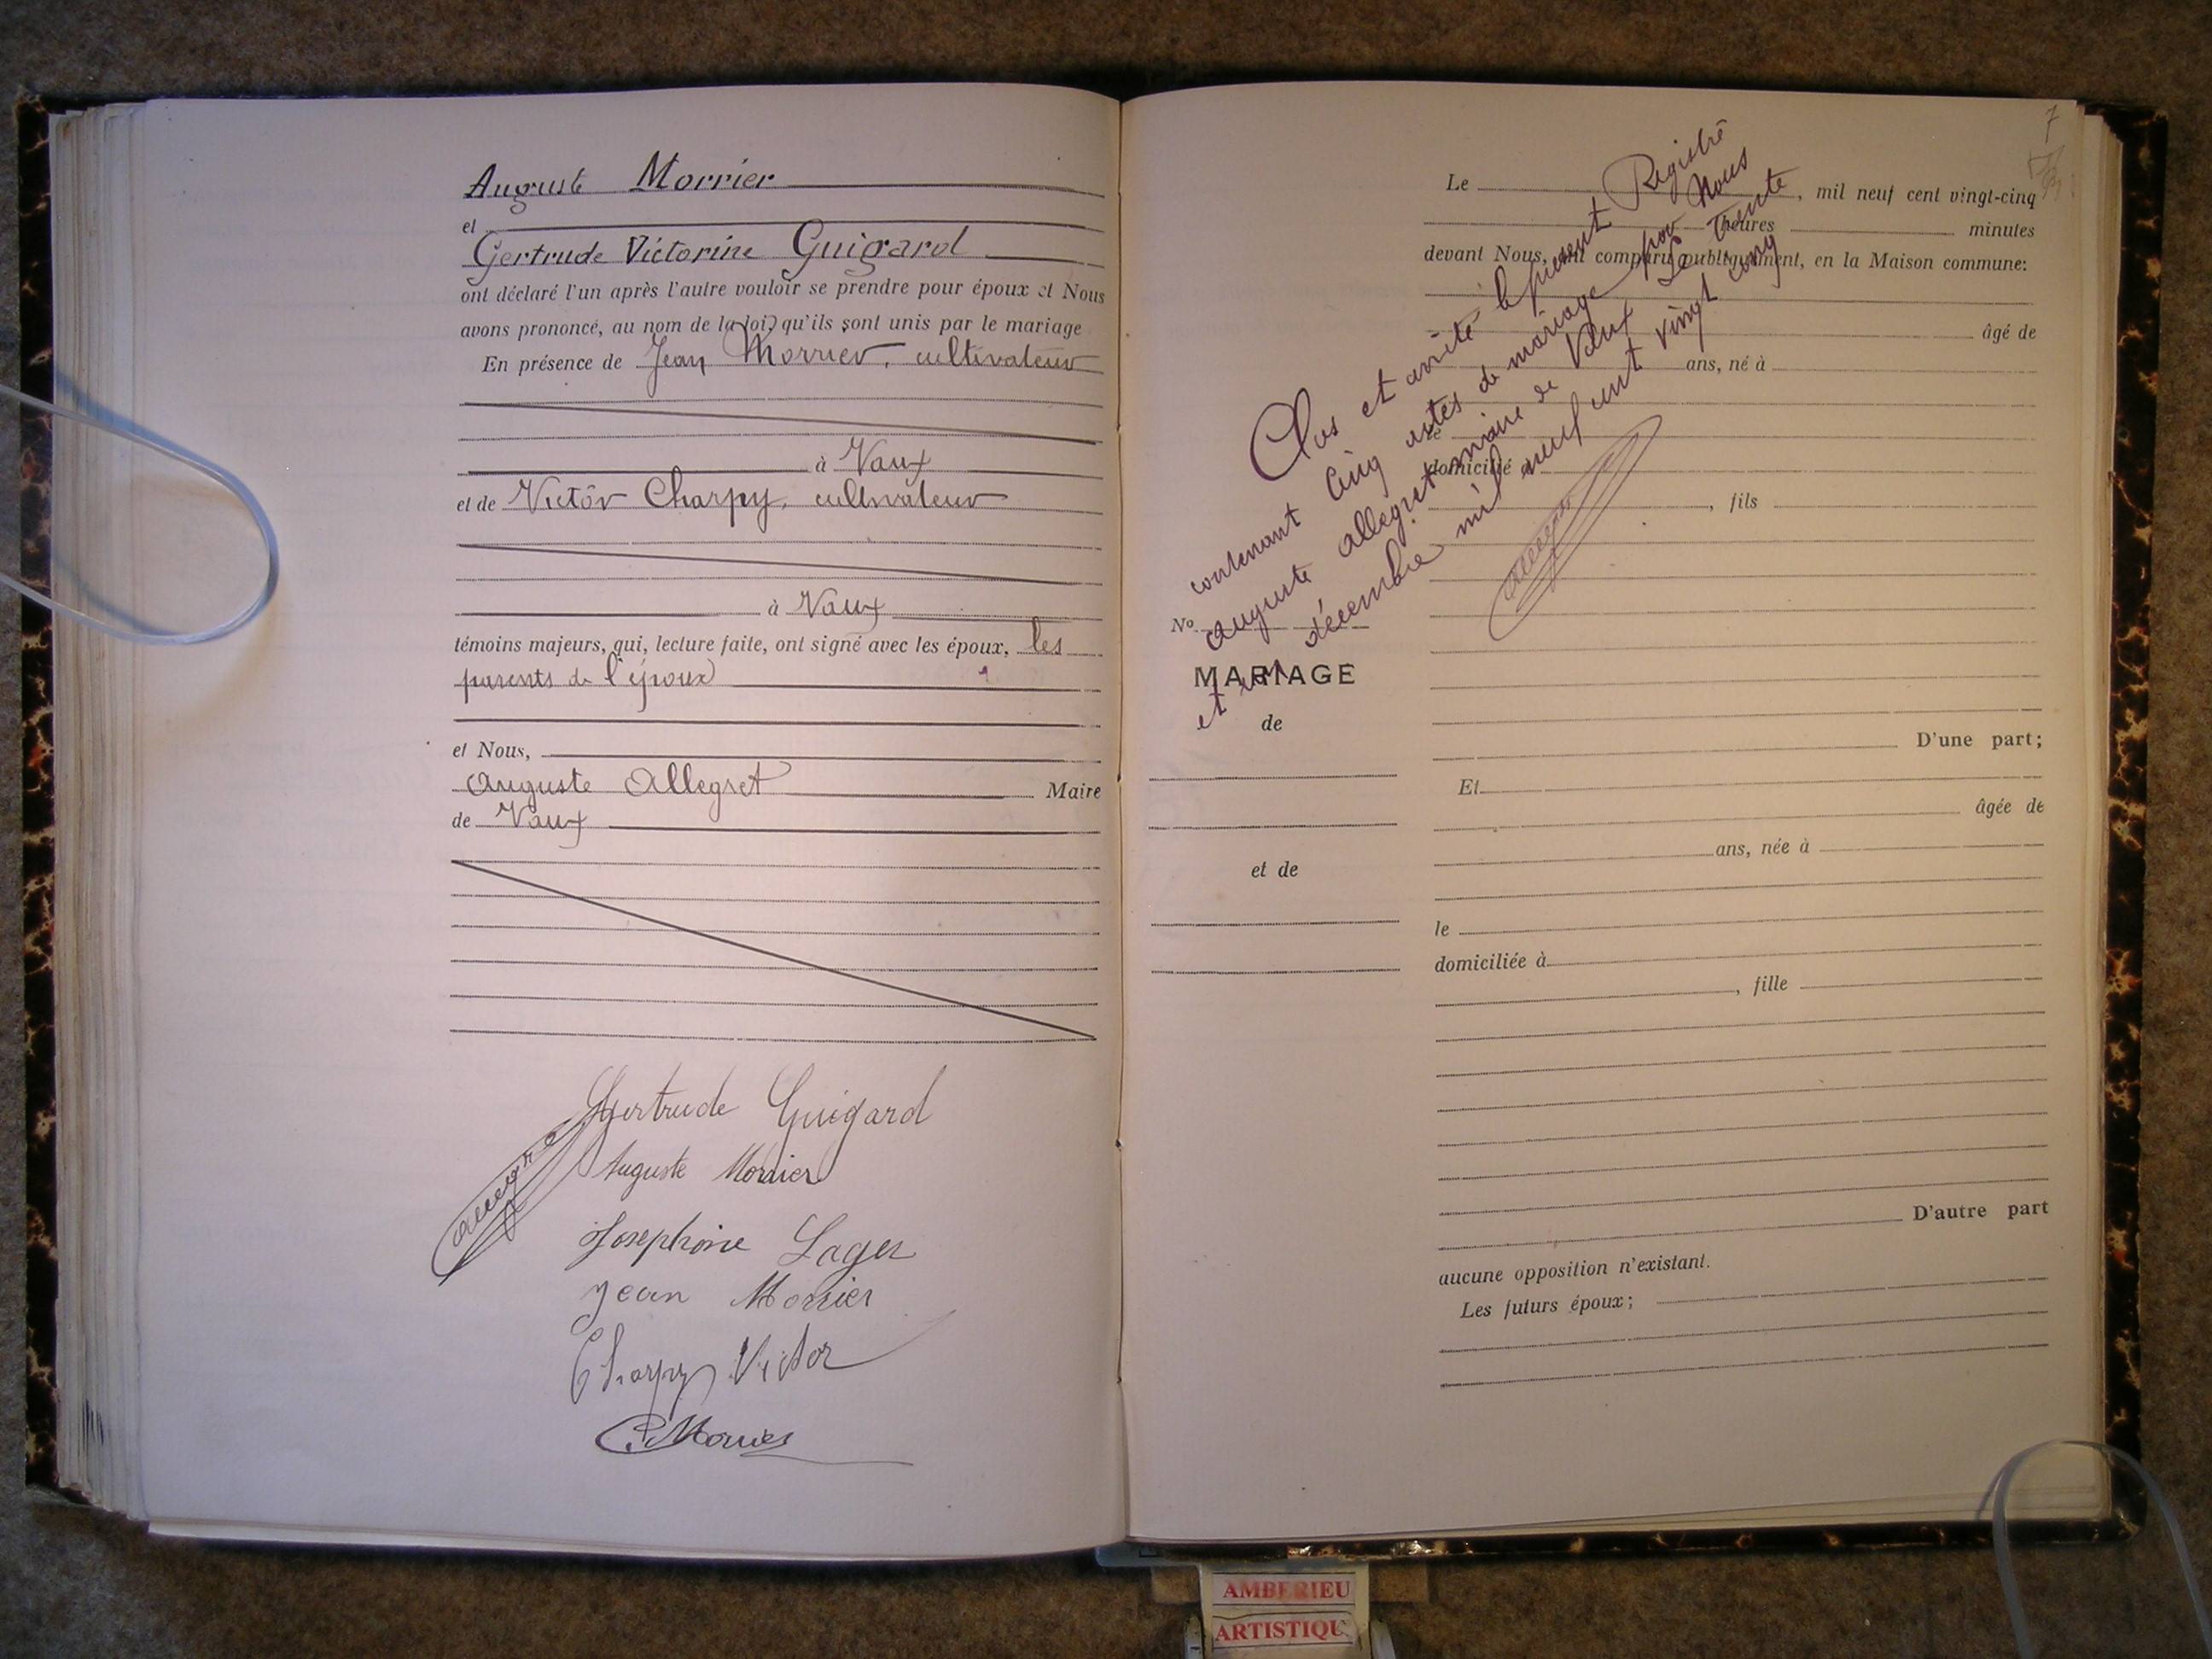 Auguste Morrier
et
Gertrude Victorine Guigard
ont déclaré l'un après l'autre vouloir se prendre pour époux et Nous
avons prononcé, au nom de la loi, qu'ils sont unis par le mariage
En présence de Jean Morrier, cultivateur
à Vaux
et de Victor Charpy, cultivateur
à Vaux
témoins majeurs, qui, lecture faite, ont signé avec les époux, les
parents de l'époux
et Nous,
Auguste Allegret Maire
de Vaux
Gertrude Guigard
Auguste Morrier
Allegret
Josephine Lager
Jean Morrier
Charpy Victor
C. Morrier
7
Clos et arrêté le présent Registre
contenant Cinq actes de mariage par Nous
Auguste Allegret maire de Vaux Le Trente
et un décembre mil neuf cent vingt cinq
Allegret
Le , mil neuf cent vingt-cinq
heures minutes
devant Nous, ont comparu publiquement, en la Maison commune:
âgé de
ans, né à
le
domicilié à
, fils
No
MARIAGE
de
et de
D'une part;
Et
âgée de
ans, née à
le
domiciliée à
, fille
D'autre part
aucune opposition n'existant.
Les futurs époux;
AMBERIEU
ARTISTIQU